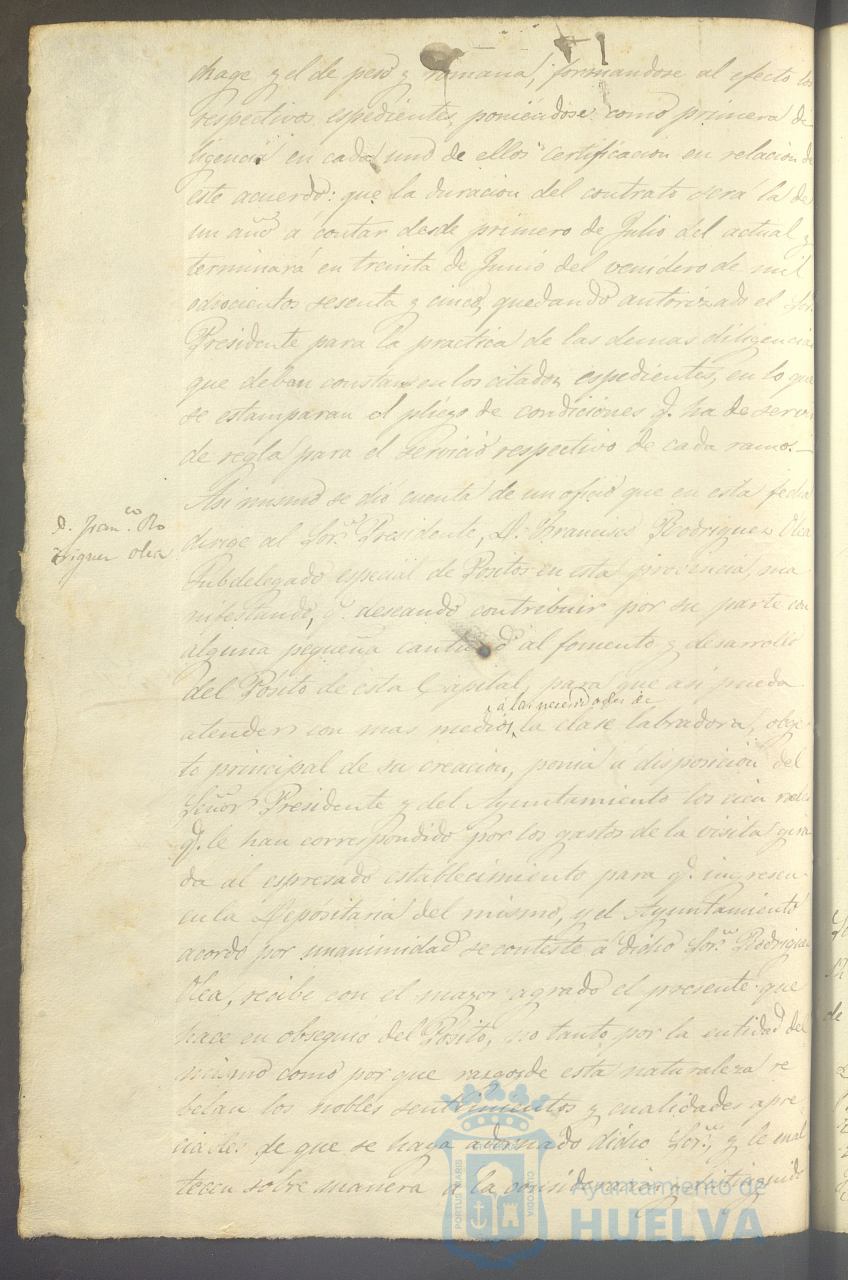 chage y el de peso y romana, formandose al efecto los
respectivos espedientes, poniéndose como primera di
ligencia en cada uno de ellos certificacion en relacion de
este acuerdo: que la duracion del contrato será la de
un año á contar desde primero de Julio del actual y
terminará en treinta de Junio del venidero de mil
ochocientos sesenta y cinco, quedando autorizado el Sor.
Presidente para la practica de las demas diligencias
que deban constar en los citados espedientes, en lo que
se estamparan el pliego de condiciones q. ha de servir
de regla para el servicio respectivo de cada ramo.
D. Franco. Ro
driguez Olea
Asi mismo se dió cuenta de un oficio que en esta fecha
dirige al Sor. Presidente, D. Francisco Rodriguez Olea
Subdelegado especial de Positos en esta provincia, ma
nifestando, q. deseando contribuir por su parte con
alguna pequeña cantidad al fomento y desarrollo
del Pósito de esta Capital, para que asi pueda
á las necesidades de
atender con mas medios la clase labradora, obge
to principal de su creacion, ponia á disposicion del
Señor Presidente y del Ayuntamiento los cien reales
q. le han correspondido por los gastos de la visita gira
da al espresado establecimiento para q. ingresen
en la Depositaria del mismo, y el Ayuntamiento
acordó por unanimidad se conteste á dicho Sor. Rodriguez
Olea, recibe con el mayor agrado el presente que
hace en obsequio del Pósito, no tanto por la entidad del
mismo como por que rasgos de esta naturaleza re
belan los nobles sentimientos y cualidades apre
ciables de que se haya adornado dicho Sor., y le enal
tecen sobre manera á la consideracion
PORTUS MARIS
CUSTODIA
Ayuntamiento de
HUELVA